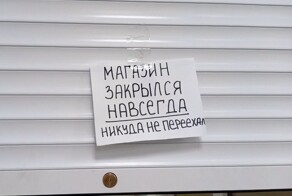 МАГАЗИН
ЗАКРЫЛСЯ
НАВСЕГДА
НИКУДА НЕ ПЕРЕЕХАЛ